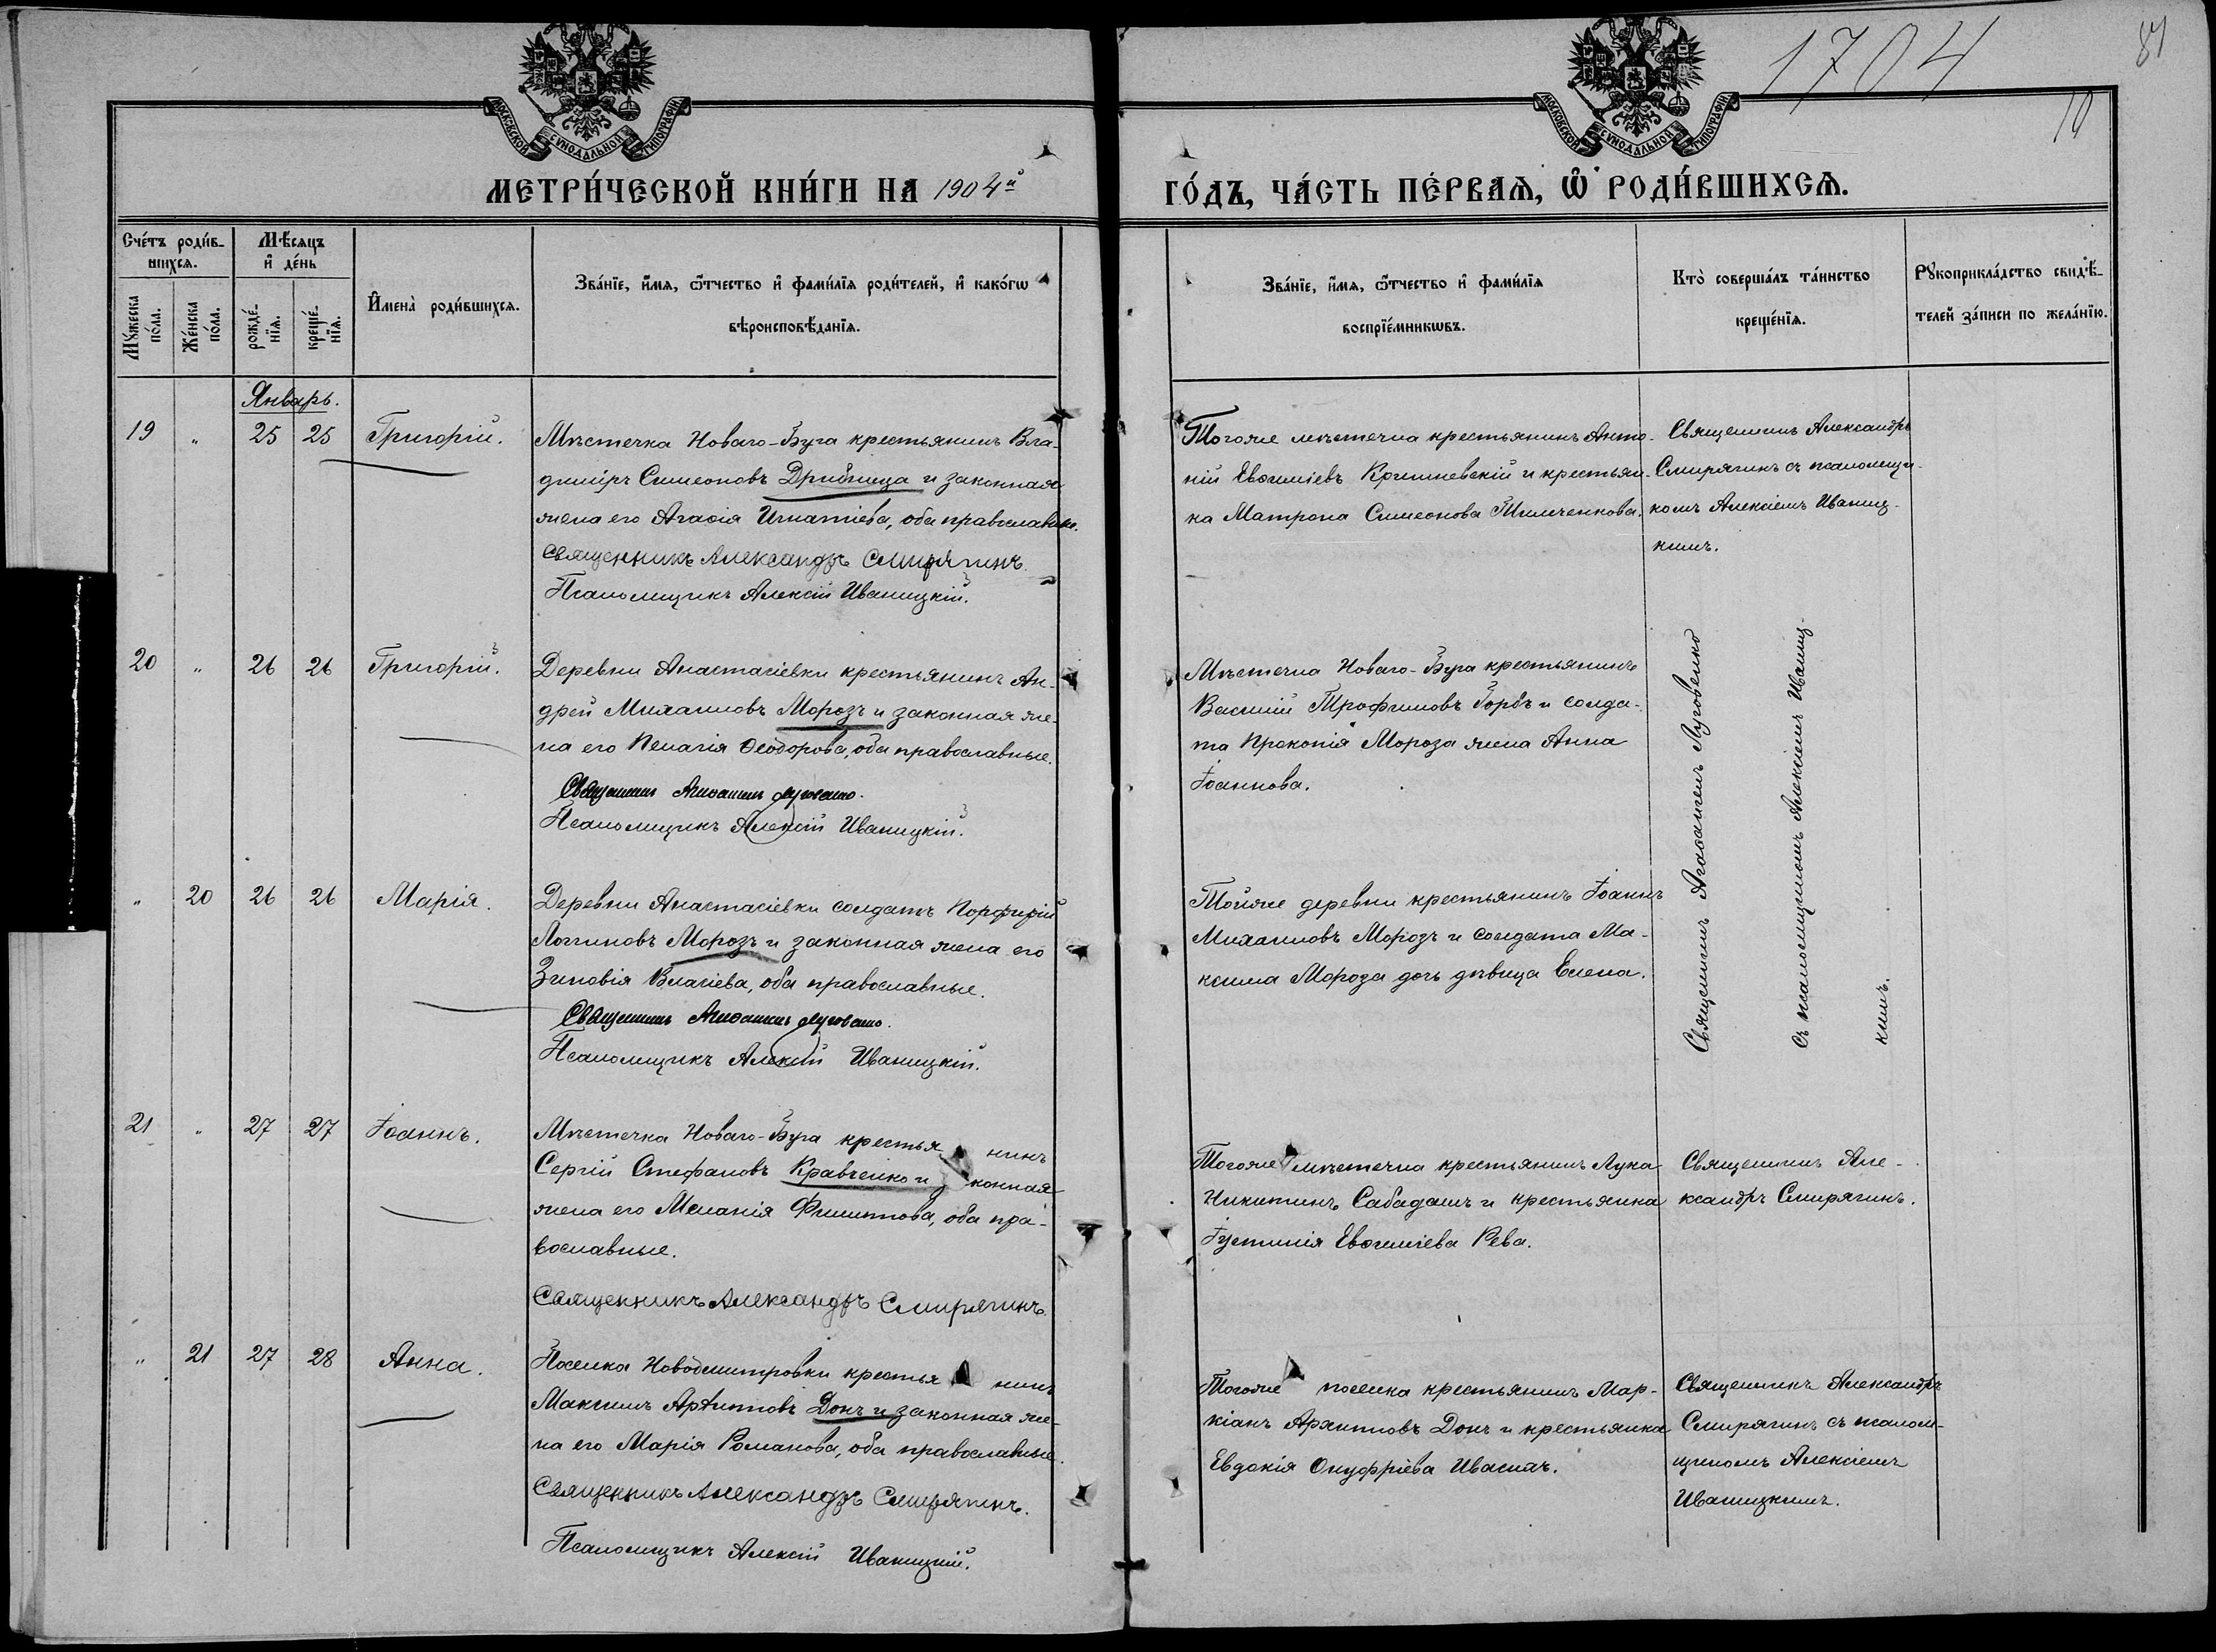 1704
81
10
МОСКОВСКОЙ СУНОДАЛЬНОЙ ТИПОГРАФІИ
МОСКОВСКОЙ СУНОДАЛЬНОЙ ТИПОГРАФІИ
МЕТРИ́ЧЕСКОЙ КНИ́ГИ НА 1904й
ГО́ДЪ, ЧА́СТЬ ПЕ́РВАЯ, Ѡ РОДИ́ВШИХСЯ.
Сче́тъ роди́в-
шихся.
Му́жеска
по́ла.
Же́нска
по́ла.
Мѣ́сяцъ
и де́нь
рожде́-
нїя.
креще́-
нїя.
Имена̀ роди́вшихся.
Зва́нїе, и́мя, ѻ́тчество и фами́лїя роди́телей, и како́гѡ
вѣроисповѣ́данїя.
Зва́нїе, и́мя, ѻ́тчество и фами́лїя
воспрїе́мникѡвъ.
Кто̀ соверша́лъ та́инство
креще́нїя.
Рꙋкоприкла́дство свидѣ́-
телей за́писи по жела́нїю.
Январь.
19 " 25 25 Григорій.
Мѣстечка Новаго-Буга крестьянинъ Вла-
диміръ Симеоновъ Дрибница и законная
жена его Агаѳія Игнатіева, оба православные.
Священникъ Александръ Смирягинъ.
Псаломщикъ Алексій Иваницкій.
Тогоже мѣстечка крестьянинъ Анто-
ній Евѳиміевъ Кришневскій и крестьян-
ка Матрона Симеонова Тимченкова.
Священникъ Александръ
Смирягинъ съ псаломщи-
комъ Алексіемъ Иваниц-
кимъ.
20 " 26 26 Григорій.
Деревни Анастасіевки крестьянинъ Ан-
дрей Михаиловъ Морозъ и законная же-
на его Пелагія Ѳеодорова, оба православные.
Священникъ Агаѳангелъ Луговенко.
Псаломщикъ Алексій Иваницкій.
Мѣстечка Новаго-Буга крестьянинъ
Василій Трофимовъ Горбъ и солда-
та Прокопія Мороза жена Анна
Іоаннова.
Священникъ Агаѳангелъ Луговенко
съ псаломщикомъ Алексіемъ Иваниц-
кимъ.
" 20 26 26 Марія.
Деревни Анастасіевки солдатъ Порфирій
Логгиновъ Морозъ и законная жена его
Зиновія Власіева, оба православные.
Священникъ Агаѳангелъ Луговенко.
Псаломщикъ Алексій Иваницкій.
Тойже деревни крестьянинъ Іоаннъ
Михаиловъ Морозъ и солдата Ма-
ксима Мороза дочь дѣвица Елена.
21 " 27 27 Іоаннъ.
Мѣстечка Новаго-Буга крестьянинъ
Сергій Стефановъ Кравченко и законная
жена его Меланія Филиппова, оба пра-
вославные.
Священникъ Александръ Смирягинъ.
Тогоже мѣстечка крестьянинъ Лука
Никитинъ Сабадашъ и крестьянка
Іустинія Евѳиміева Рева.
Священникъ Але-
ксандръ Смирягинъ.
" 21 27 28 Анна.
Поселка Новодмитровки крестьянинъ
Максимъ Архипповъ Донъ и законная же-
на его Марія Романова, оба православные.
Священникъ Александръ Смирягинъ.
Псаломщикъ Алексій Иваницкій.
Тогоже поселка крестьянинъ Мар-
кіанъ Архипповъ Донъ и крестьянка
Евдокія Онуфріева Ивасикъ.
Священникъ Александръ
Смирягинъ съ псалом-
щикомъ Алексіемъ
Иваницкимъ.